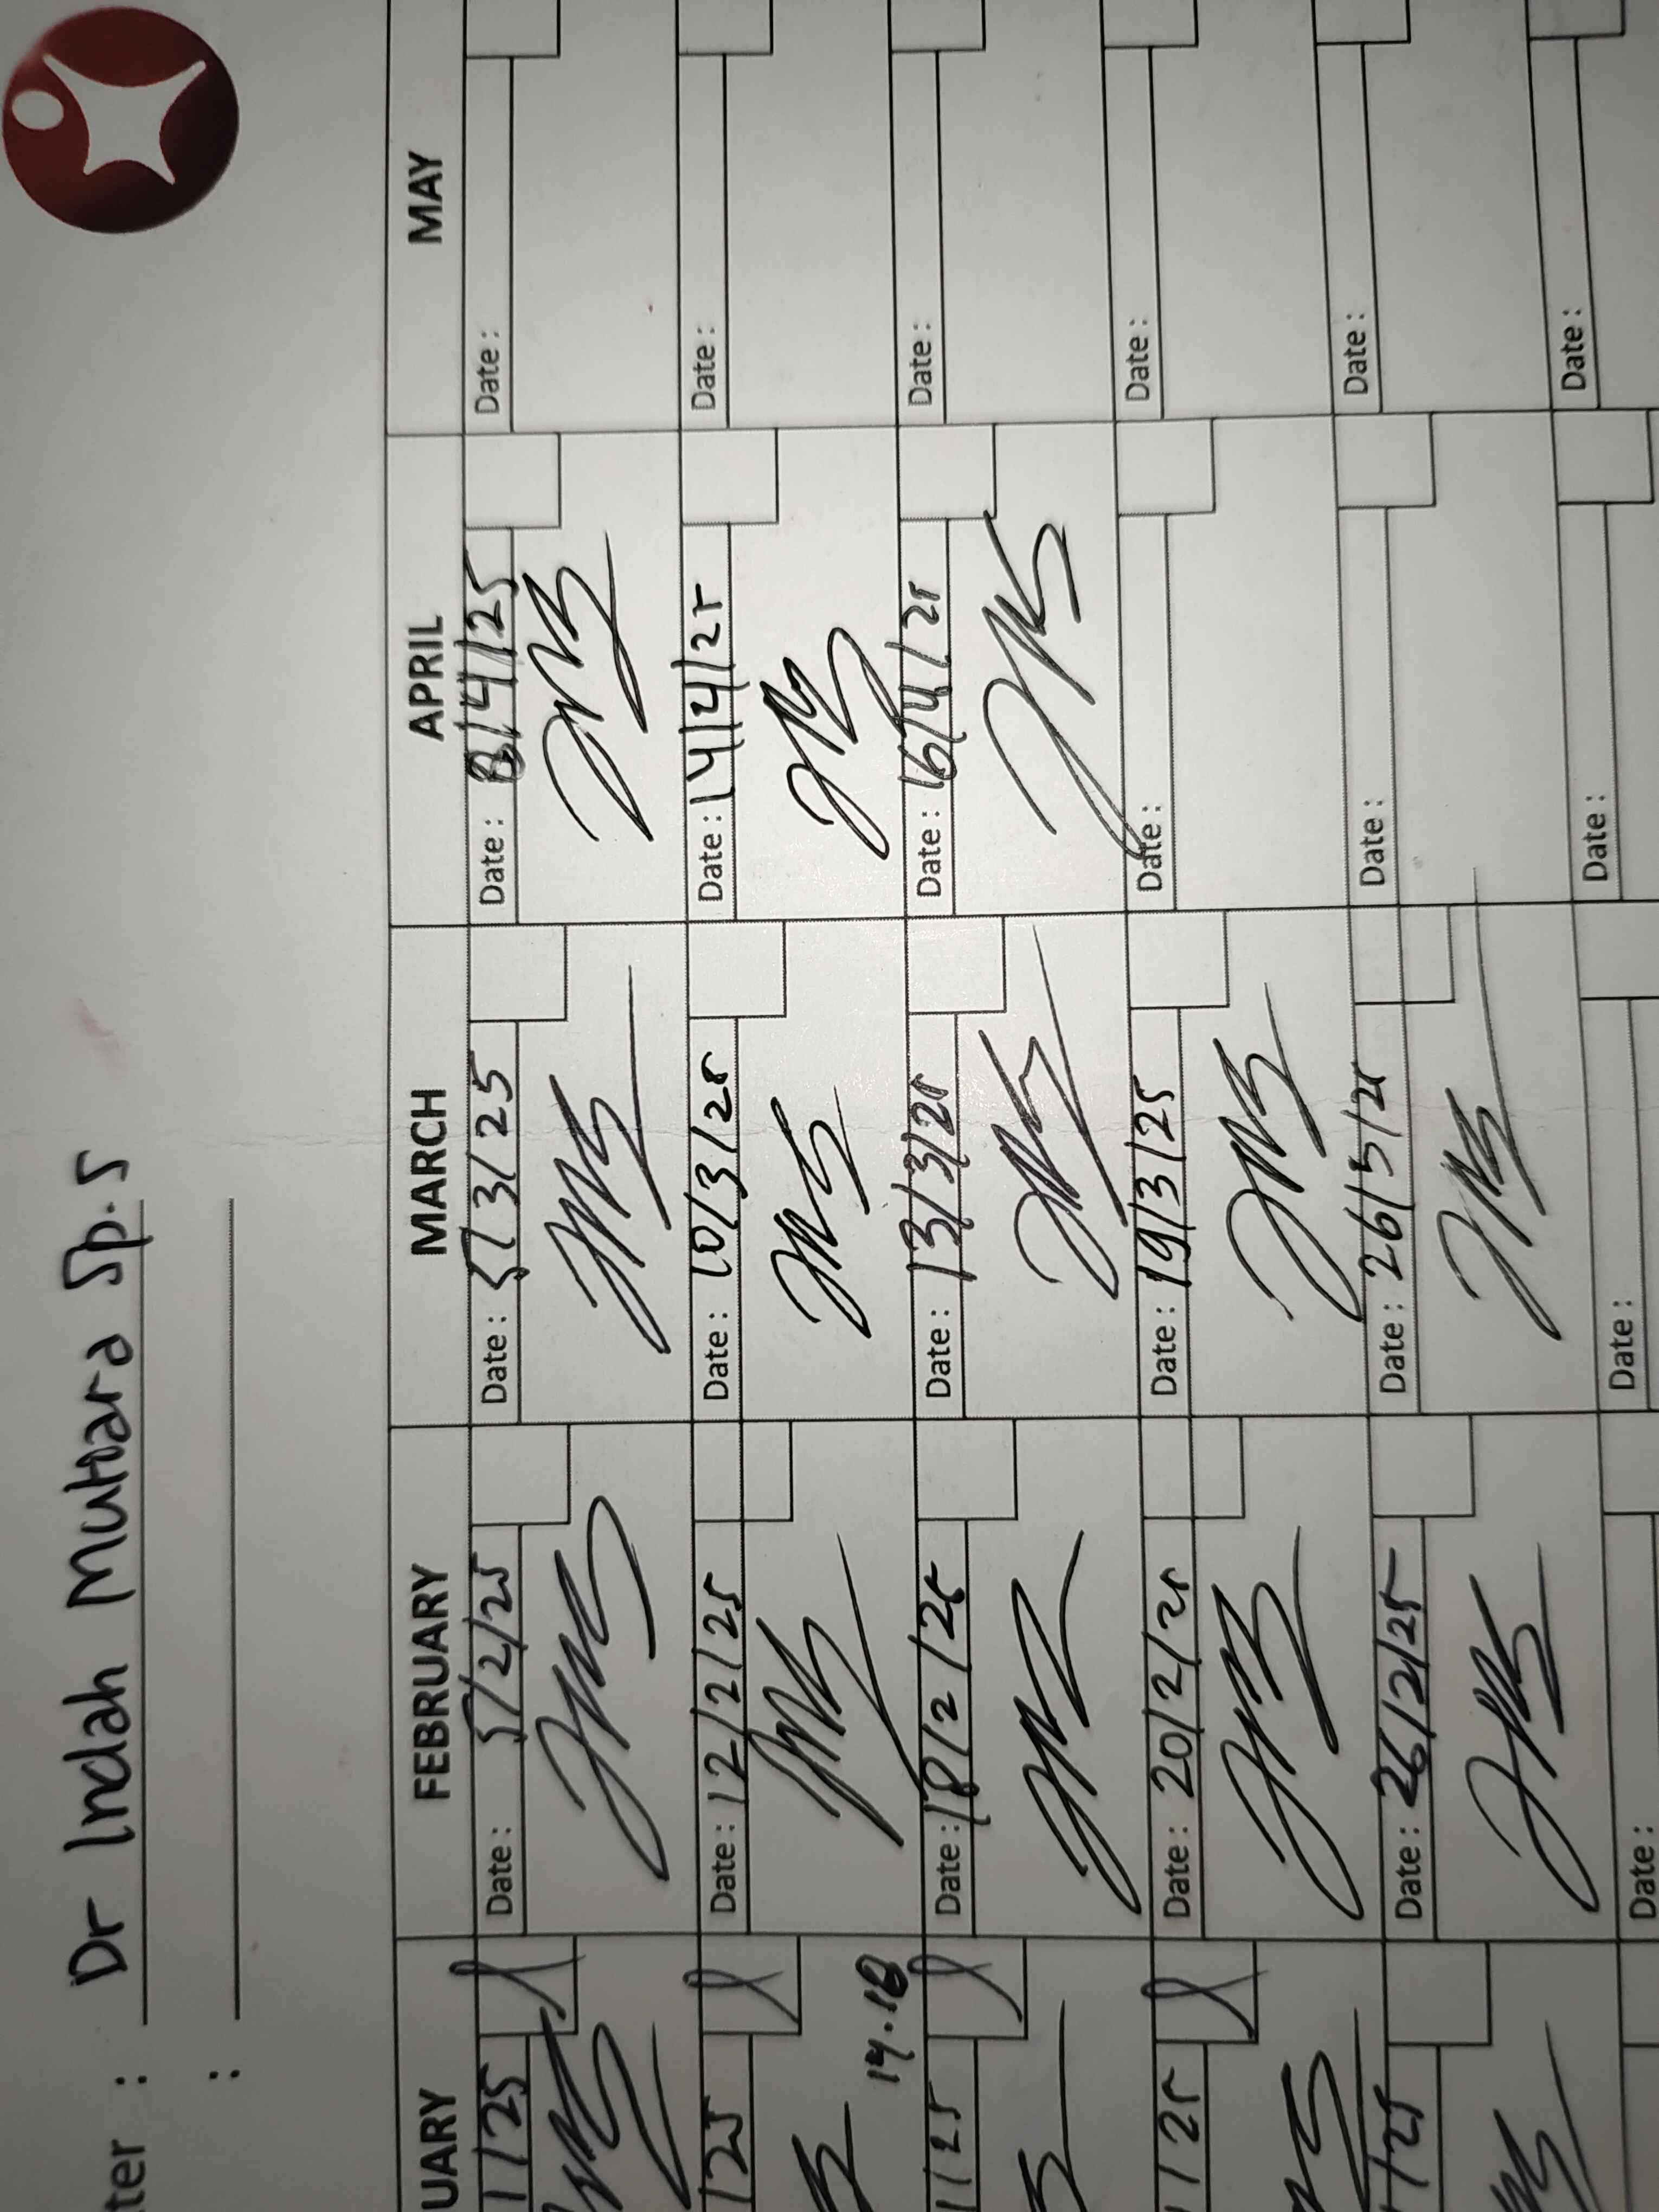 ter : Dr Indah Mutiara Sp.S
:
UARY FEBRUARY MARCH APRIL MAY
1/25 Date : 5/2/25 Date : 5/3/25 Date : 8/4/25 Date :
/25 Date : 12/2/25 Date : 10/3/25 Date : 14/4/25 Date :
14.18
1/25 Date : 18/2/25 Date : 13/3/25 Date : 16/4/25 Date :
1/25 Date : 20/2/25 Date : 19/3/25 Date : Date :
1/25 Date : 26/2/25 Date : 26/3/25 Date : Date :
Date : Date : Date : Date :